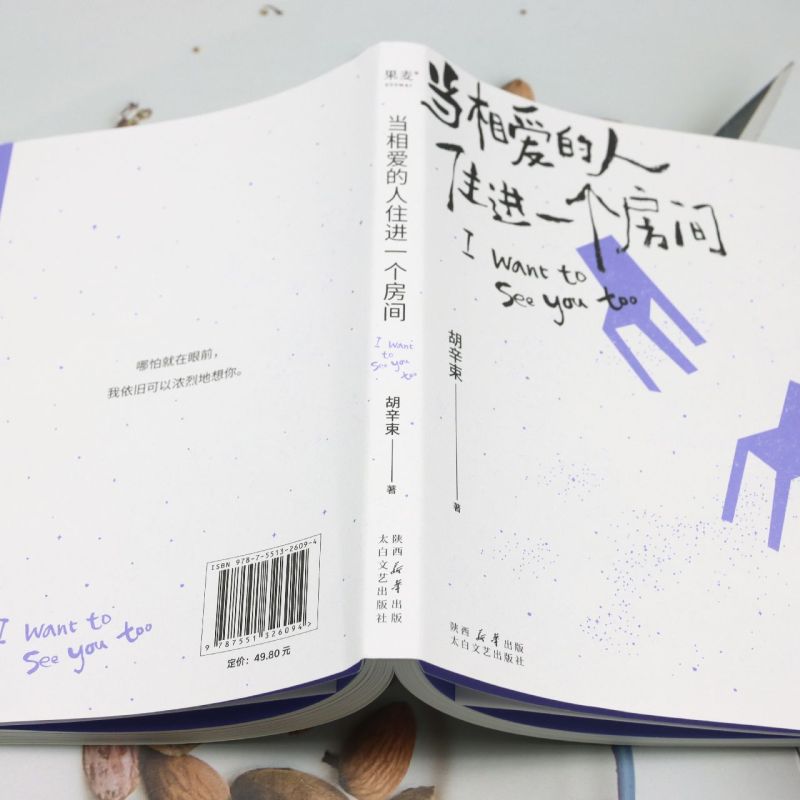 哪怕就在眼前，
我依旧可以浓烈地想你。
ISBN 978-7-5513-2609-4
9 787551 326094 >
定价：49.80元
I want to
see you too
果麦
当相爱的人住进一个房间
I want
to
see you
too
胡辛束
著
陕西新华出版
太白文艺出版社
当相爱的人
住进一个房间
I want to
see you too
胡辛束
著
陕西新华出版
太白文艺出版社